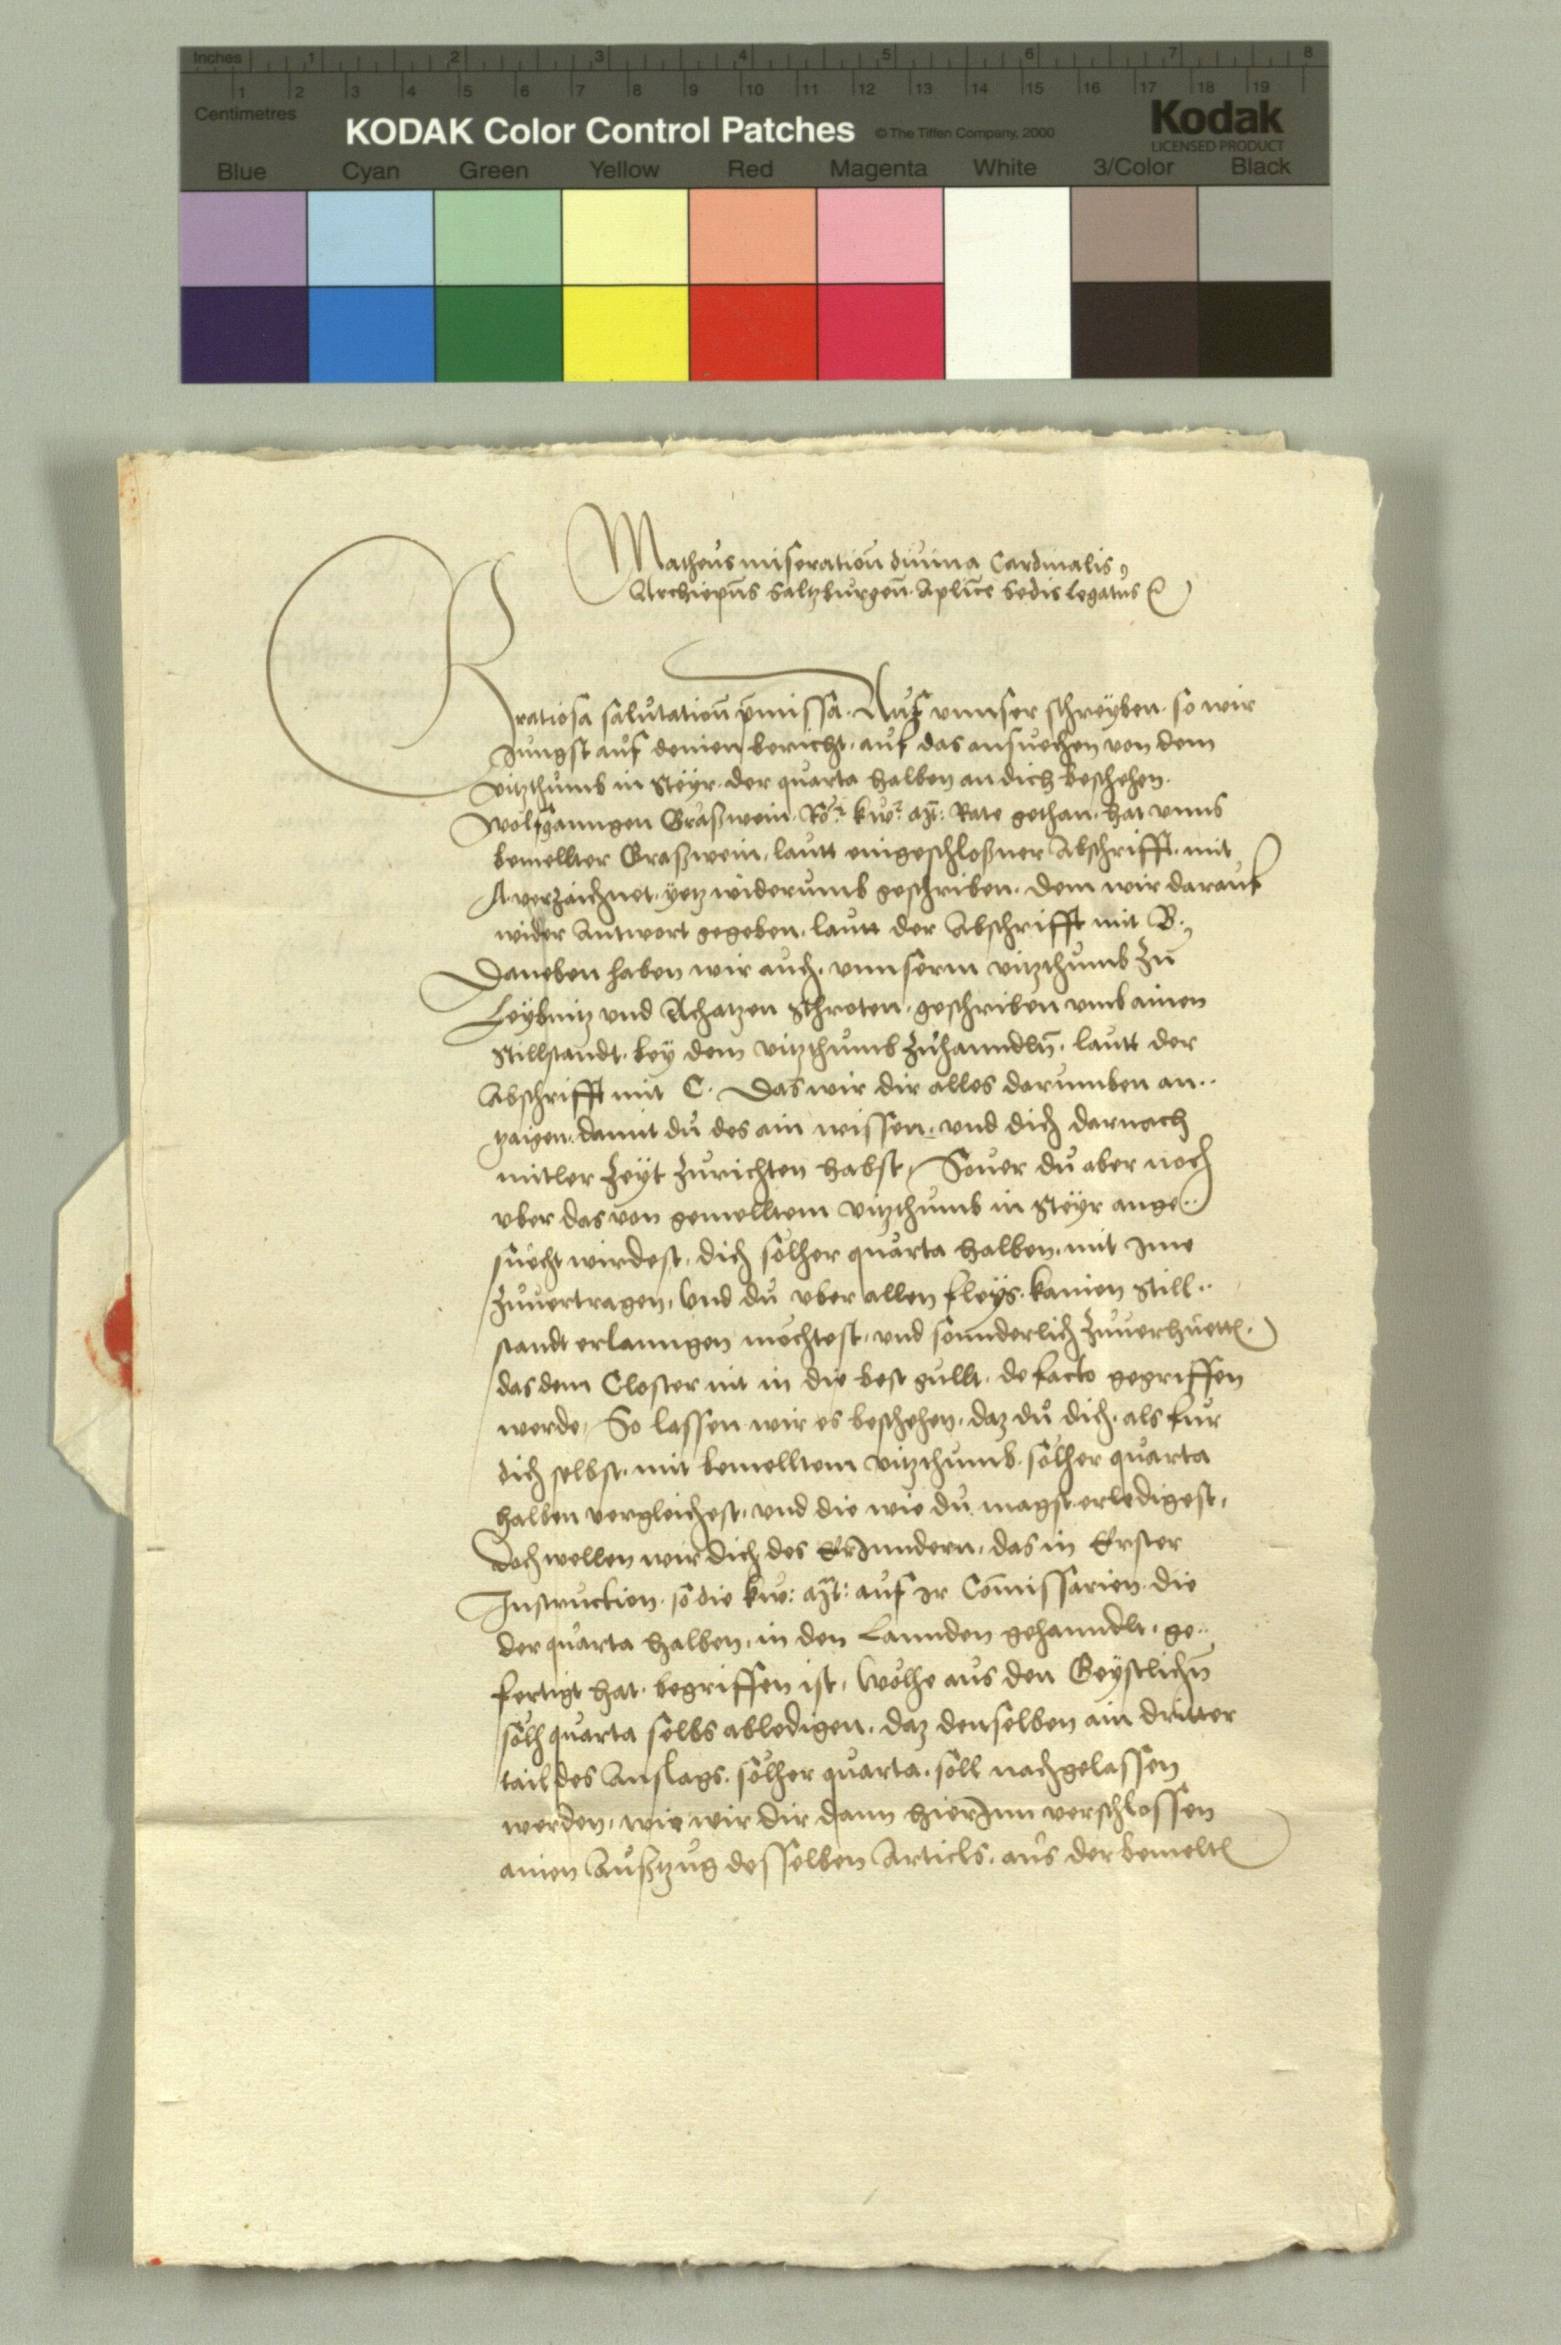 Inches 1 2 3 4 5 6 7 8
1 2 3 4 5 6 7 8 9 10 11 12 13 14 15 16 17 18 19
Centimetres
KODAK Color Control Patches © The Tiffen Company, 2000 Kodak
LICENSED PRODUCT
Blue Cyan Green Yellow Red Magenta White 3/Color Black
Matheus miseration̄ diuina Cardinalis,
Archiep̄us Saltzburgen̄. Ap̄lice Sedis Legatus ⁊c
Gratiosa salutation̄ p̄missa. Auf vnnser schreyben. so wir
Jungst auf deinen bericht. auf das ansuechen von dem
Vitzthumb in Steyr. der quarta halben an dich beschehen.
Wolfganngen Graswein. Ro: kw: Mt: Rate gethan. hat vnns
bemellter Graswein. lautt eingeschlosner Abschrifft. mit
A. verzaichnet. yetz widerumb geschriben. dem wir darauf
wider Antwort gegeben. lautt der Abschrifft mit B.,
Daneben haben wir auch. vnnserm vitzthumb zu
Leybnitz vnd Achatzen Schroten. geschriben vmb ainen
Stillstandt. bey dem vitzthumb zuhanndln̄. lautt der
Abschrifft mit C. Das wir dir alles darumben an..
zaigen. damit du des ain wissen. vnd dich darnach
mitler Zeyt zurichten habst, Souer du aber noch
vber das von gemelltem vitzthumb in Steyr ange..
suecht wirdest. dich sölher quarta halben. mit Ime
zuuertragen, Vnd du vber allen fleys. kainen Still..
standt erlanngen möchtest. vnd sonnderlich zuuerhuetten.
das dem Closter nit in die best gullt. de facto gegriffen
werde, So lassen wir es beschehen. daz du dich. als fur
dich selbst. mit bemelltem vitzthumb. sölher quarta
halben vergleichest. vnd die wie du magst erledigest,
Doch wellen wir dich des Erinndern. das in Erster
Instruction. so die kw: Mt: auf Ir Com̄issarien die
der quarta halben. in den Lannden gehanndlt. ge..
fertigt hat. begriffen ist, Wölhe aus den Geystlichn̄
sölh quarta selbs abledigen. daz denselben ain dritter
tail des Anslags. sölher quarta. soll nachgelassen
werden, wie wir dir dann hierInn verschlossen
ainen Auszug desselben Articls. aus der bemelten